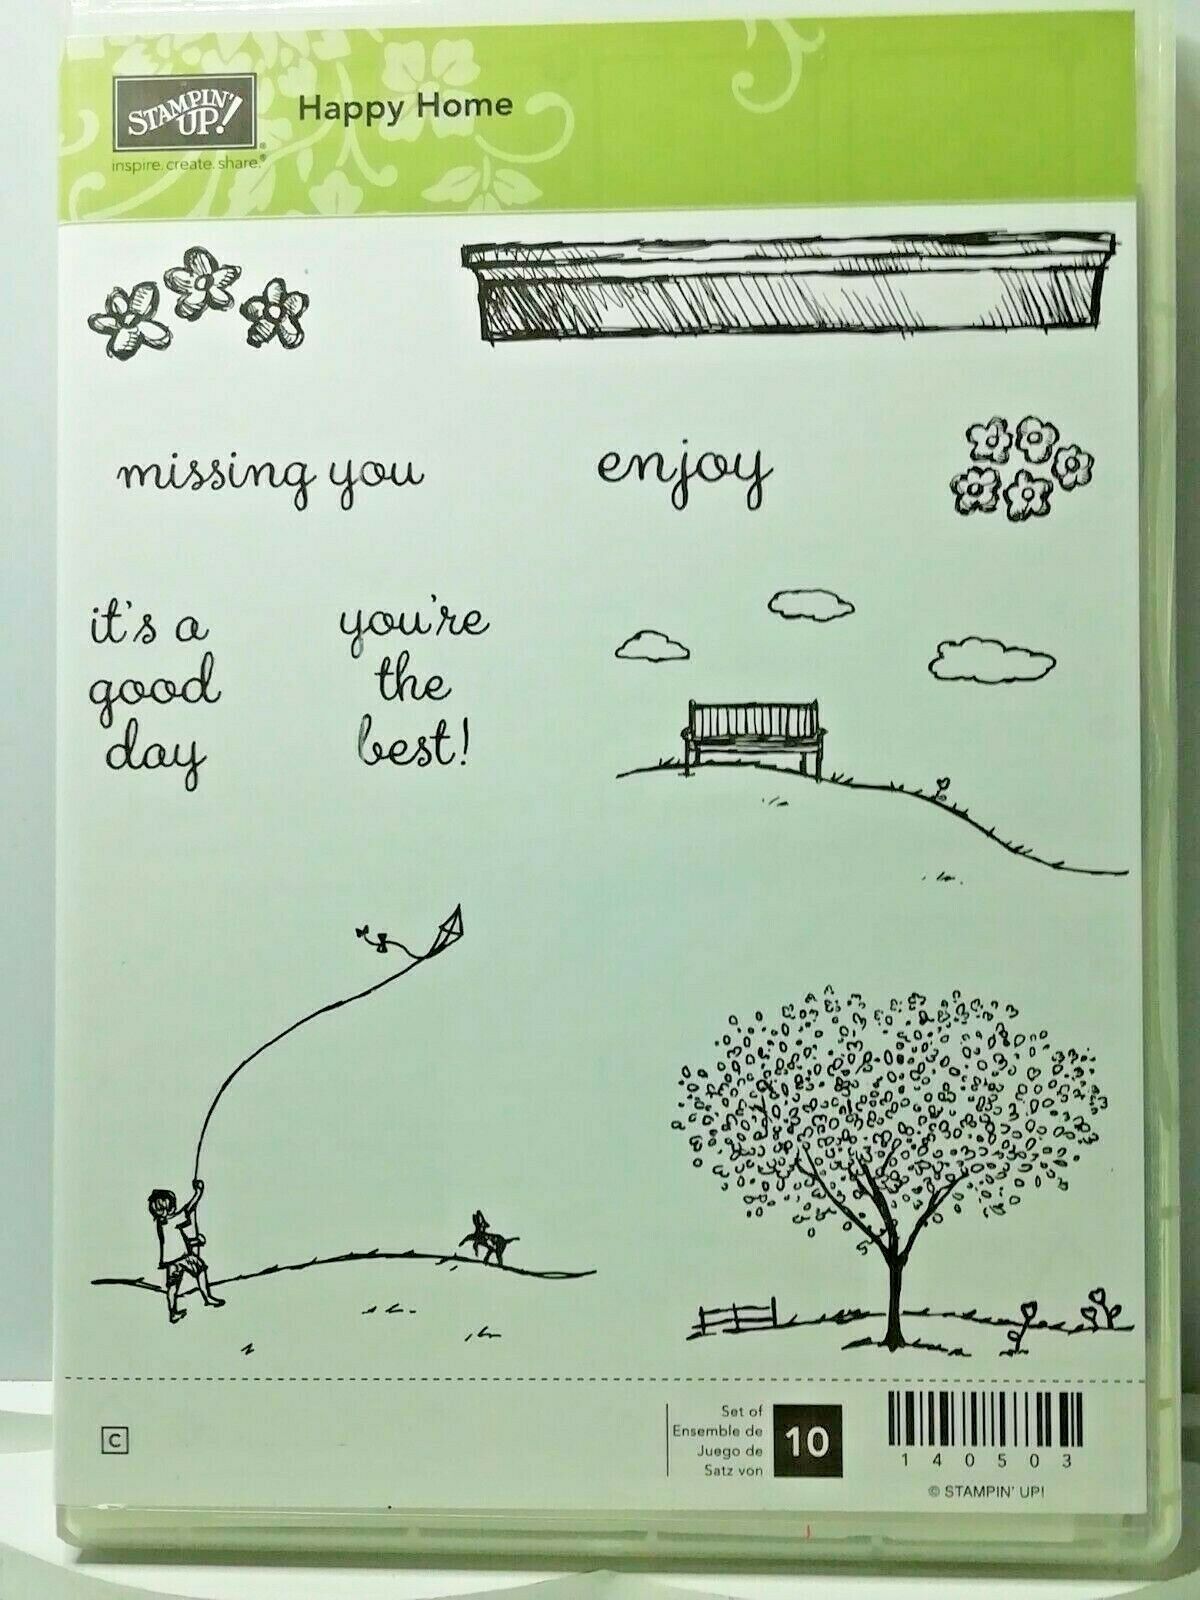 STAMPIN' UP!®
inspire. create. share.®
Happy Home
missing you
enjoy
it's a
good
day
you're
the
best!
C
Set of
Ensemble de
Juego de
Satz von
10
140503
© STAMPIN' UP!